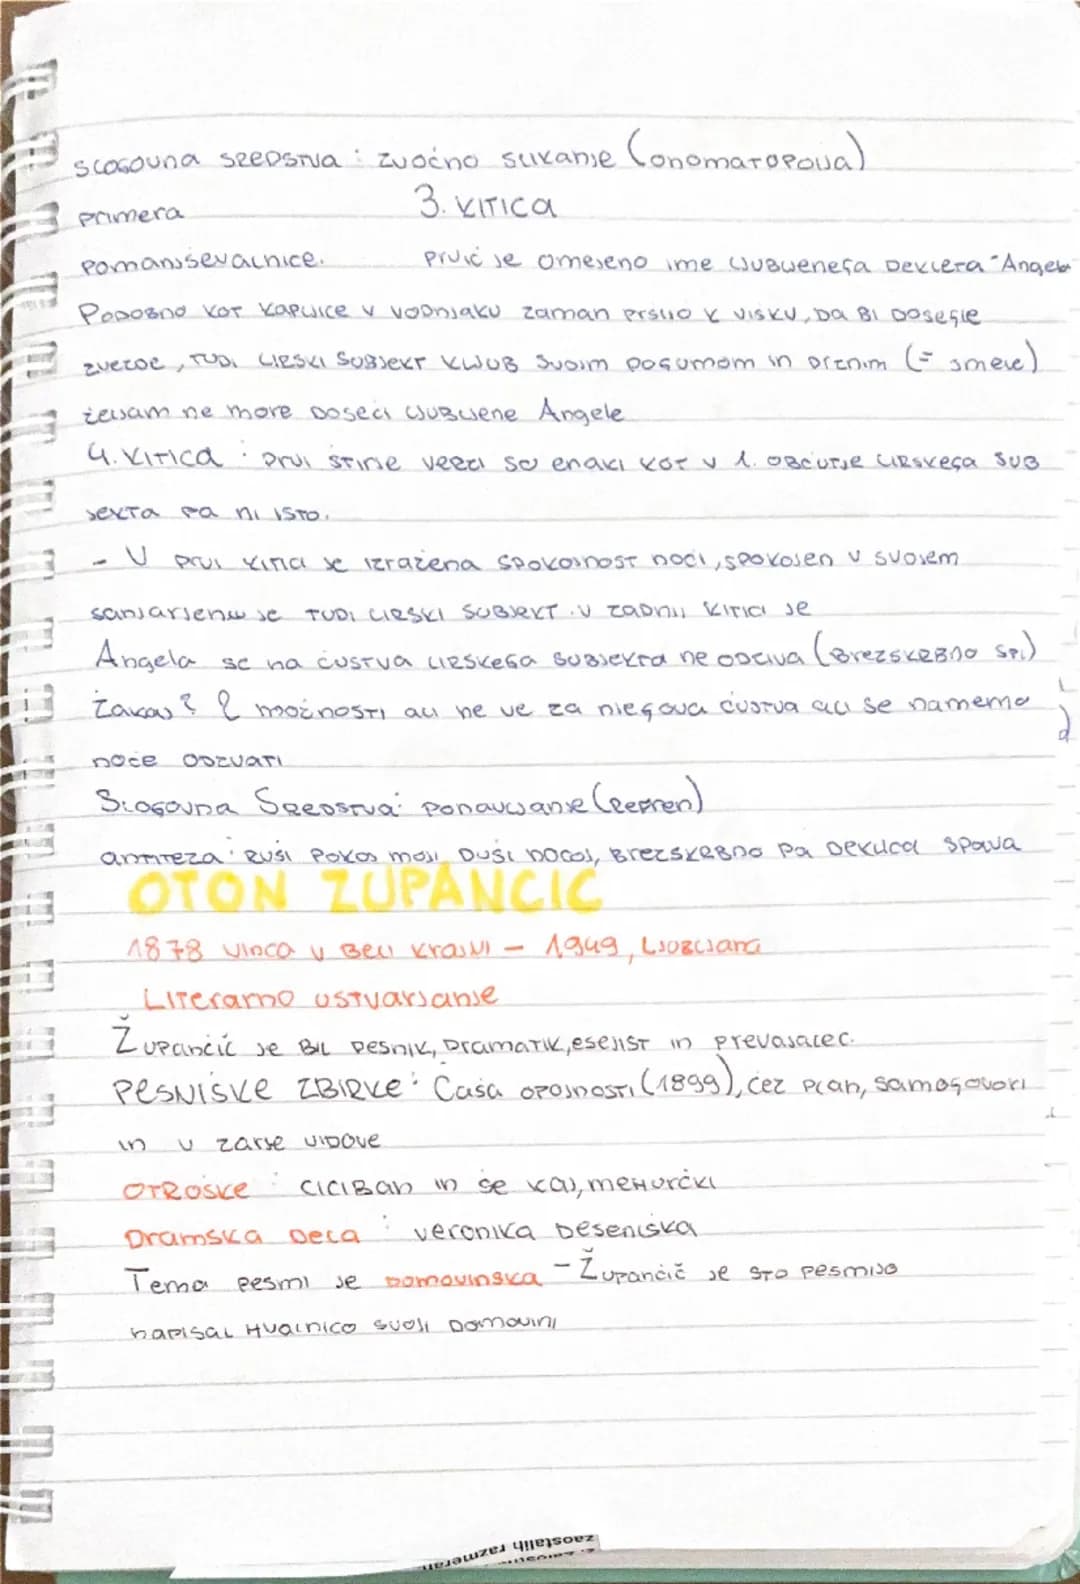 slogovna sredstva : zvočno slikanje (onomatopoija)
primera 3. KITICA
pomanjševalnice. prvič je omejeno ime ljubljenega dekleta "Angela
Podobno kot kapljice v vodnjaku zaman prsijo k visku, da bi dosegle
zvezde, tudi lirski subjekt kljub svojim pogumom in drznim (= smele)
željam ne more doseči ljubljene Angele
4. KITICA : prvi štirje verzi so enaki kot v 1. občutje lirskega sub
jekta pa ni isto.
- V prvi kitici je izražena spokojnost noči, spokojen v svojem
sanjarjenju je tudi lirski subjekt. v zadnji kitici je
Angela se na čustva lirskega subjekta ne odziva (brezskrbno spi)
Zakaj? 2 možnosti ali ne ve za njegova čustva ali se namerno
noče odzvati
Slogovna Sredstva: ponavljanje (Refren)
antiteza : ruši pokoj moji duši nocoj, brezskrbno pa deklica spava
OTON ZUPANCIC
1878 Vinca v Beli krajini - 1949, Ljubljana
Literarno ustvarjanje
Župančič je bil pesnik, dramatik, esejist in prevajalec.
PESNIŠKE ZBIRKE : Časa opojnosti (1899), čez plan, samogovori
in v zarje vidove
OTROŠKE : CICIBAN in še kaj, mehurčki
Dramska dela : veronika Deseniška
Tema pesmi je domovinska - Župančič je s to pesmijo
napisal hvalnico svoji domovini
zaostalih razmerah